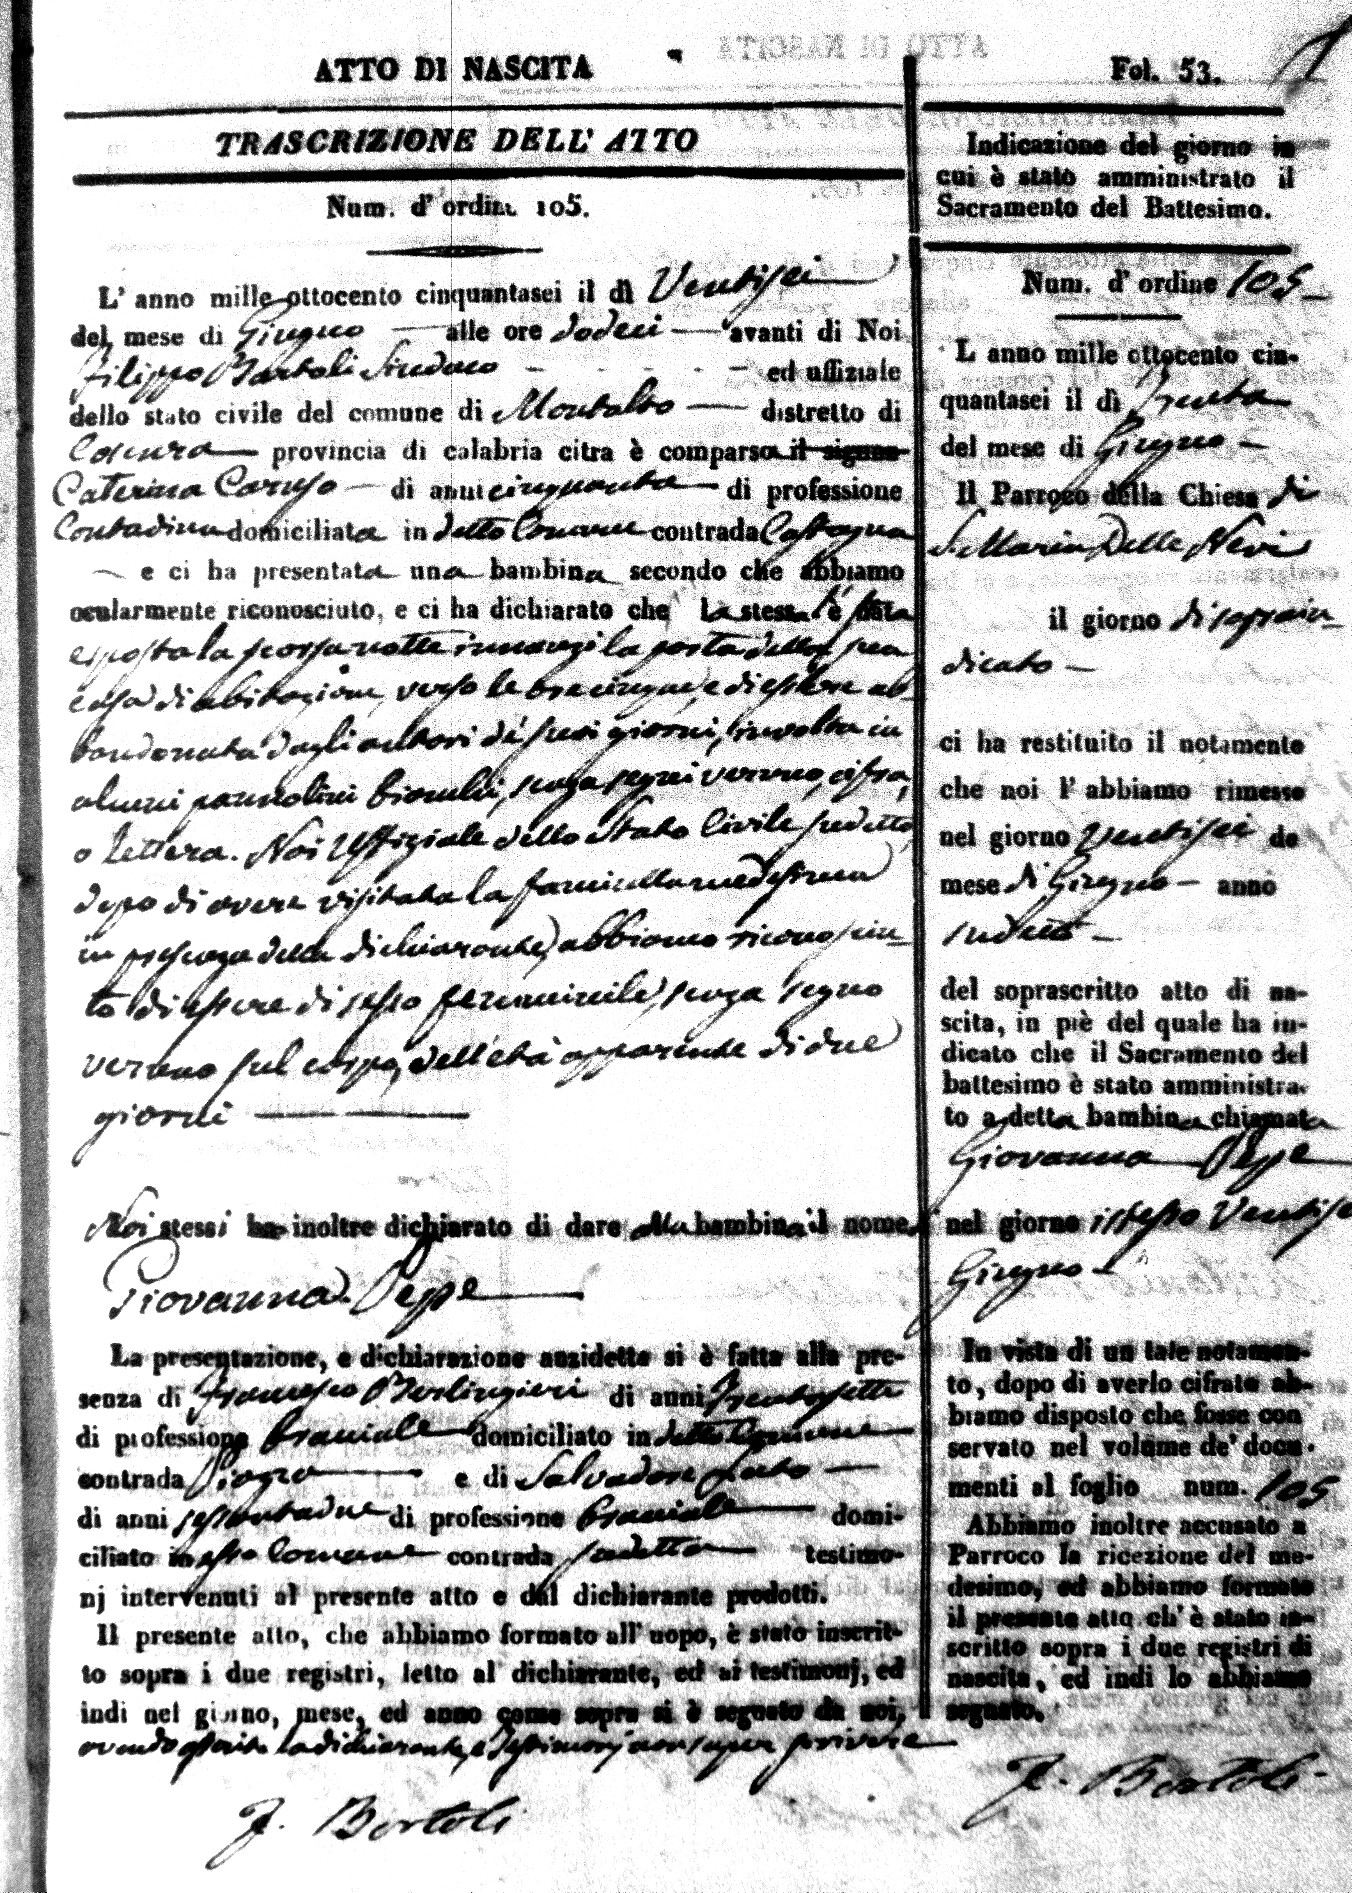 ATTO DI NASCITA
Fol. 53.
TRASCRIZIONE DELL' ATTO
Num. d' ordine 105.
L' anno mille ottocento cinquantasei il dì Ventisei
del mese di Giugno — alle ore dodeci — avanti di Noi
Filippo Bartoli Sindaco - - - - - ed uffiziale
dello stato civile del comune di Montalto — distretto di
Cosenza — provincia di calabria citra è comparsa il signor
Caterina Caruso — di anni cinquanta — di professione
Contadina domiciliata in detto Comune contrada Castagna
— e ci ha presentata una bambina secondo che abbiamo
ocularmente riconosciuto, e ci ha dichiarato che la stessa è stata
esposta la scorsa notte innanzi la porta della sua
casa di abitazione, verso le ore cinque, e di essere ab-
bandonata dagli autori de' suoi giorni, involta in
alcuni pannolini bianchi, senza segni veruno, cifra,
o lettera. Noi Uffiziale dello Stato Civile sudetto,
dopo di avere visitata la fanciulla medesima
in presenza della dichiarante, abbiamo riconosciu-
to di essere di sesso femminile, senza segno
veruno sul corpo, dell'età apparente di due
giorni —
Noi stessi ha inoltre dichiarato di dare alla bambina il nome di
Giovanna Pepe —
La presentazione, e dichiarazione anzidetta si è fatta alla pre-
senza di Francesco Berlingieri di anni trentasette
di professione braciale domiciliato in detto Comune
contrada — e di Salvadore —
di anni sessantadue di professione braciale — domi-
ciliato in esso Comune contrada sudetta — testimo-
nj intervenuti al presente atto e dal dichiarante prodotti.
Il presente atto, che abbiamo formato all' uopo, è stato inscrit-
to sopra i due registri, letto al dichiarante, ed ai testimonj, ed
indi nel giorno, mese, ed anno come sopra si è segnato da noi,
avendo asserito la dichiarante, e testimonj non saper scrivere
F. Bartoli
Indicazione del giorno in
cui è stato amministrato il
Sacramento del Battesimo.
Num. d' ordine 105 —
L anno mille ottocento cin-
quantasei il dì Trenta
del mese di Giugno —
Il Parroco della Chiesa di
S. Maria Delle Nevi
il giorno di sopra in-
dicato —
ci ha restituito il notamento
che noi l' abbiamo rimesso
nel giorno ventisei de
mese di Giugno — anno
sudetto —
del soprascritto atto di na-
scita, in piè del quale ha in-
dicato che il Sacramento del
battesimo è stato amministra-
to a detta bambina chiamata
Giovanna Pepe
nel giorno istesso Ventisei
Giugno —
In vista di un tale notamen-
to, dopo di averlo cifrato ab-
biamo disposto che fosse con
servato nel volume de' docu-
menti al foglio num. 105
Abbiamo inoltre accusato a
Parroco la ricezione del me-
desimo, ed abbiamo formato
il presente atto ch' è stato in-
scritto sopra i due registri di
nascita, ed indi lo abbiamo
segnato.
F. Bartoli